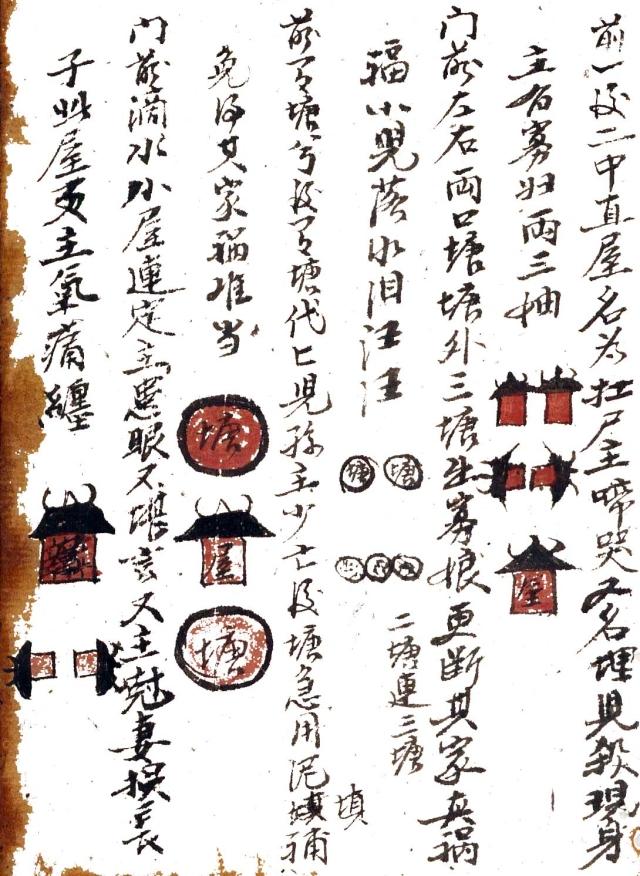 前一段二中直屋名为扛尸主啼哭又名埋兒殺現身
主有寡妇兩三抽
屋
门前左右両口塘塘外三塘出寡娘更断其家兵禍
福小児落水泪汪汪
塘 塘
二塘連三塘
前有塘兮後有塘代匕児孫主少亡後塘急用泥填補
填
免得其家禍难当
塘
屋
塘
门前滴水小屋連定主患眼不堪言又主尅妻损長
子此屋更主氣痛纏